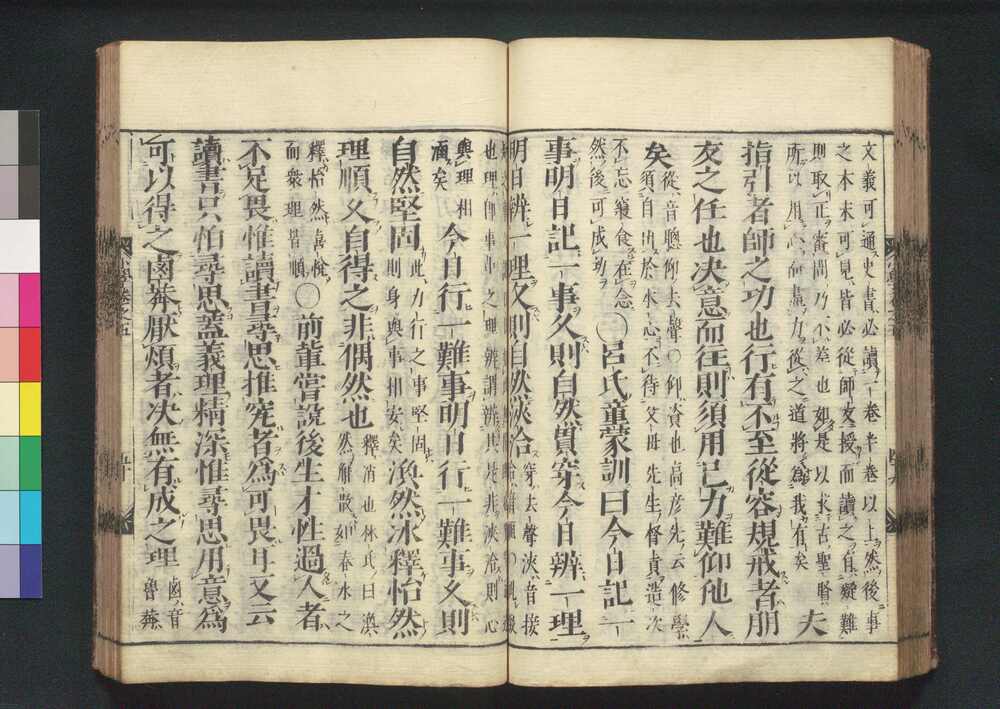 文義可通史書必讀一卷半卷以上然後事
之本末可見皆必從師友授而讀之有疑難
則取正審問乃不差也如是以求古聖賢
所以用心而盡力從之道將為我有矣
夫
指引者師之功也行有不至從容規戒者朋
友之任也决意而往則須用己力難仰他人
矣
從音聰仰去聲○仰資也高彦先云修學
須自由於本心不待父母先生督責造次
不忘寢食在念
然後可成功
○呂氏童蒙訓曰今日記一
事明日記一事久則自然貫穿今日辨一理
明日辨一理久則自然浹洽
穿去聲浹音接
也理即事中之理辨謂辨其是非浹洽則心
與理相
涵矣
今日行一難事明日行一難事久則
自然堅固
此力行之事堅固
則身與事相安矣
渙然冰釋怡然
理順久自得之非偶然也
釋消也林氏曰渙
然解散如春水之
釋怡然喜悅
而衆理皆順
○前輩嘗說後生才性過人者
不足畏惟讀書尋思推究者為可畏耳又云
讀書只怕尋思蓋義理精深惟尋思用意為
可以得之鹵莽厭煩者决無有成之理
鹵音
魯莽
小學卷之五
五十